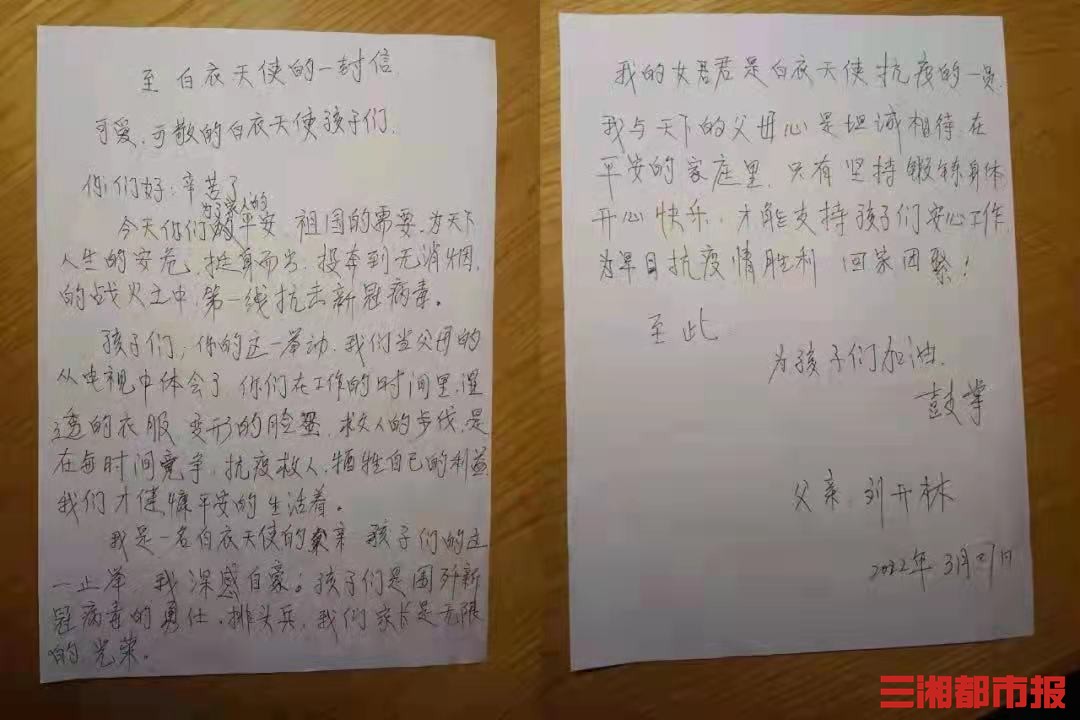 至白衣天使的一封信
可爱、可敬的白衣天使孩子们、
你们好：辛苦了
为了家人的
今天你们的平安、祖国的需要、为天下
人生的安危，挺身而出、投奔到无消烟，
的战火之中，第一线抗击新冠病毒。
孩子们，你的这一举动、我们当父母的
从电视中体会了、你们在工作的时间里、湿
透的衣服、变形的脸蛋、求人的步伐、是
在与时间竞争、抗疫救人、牺牲自己的利益
我们才健慷平安的生活着。
我是一名白衣天使的父亲 孩子们的这
一止举 我深感自豪。孩子们是围歼新
冠病毒的勇仕、排头兵、我们家长是无限
的光荣。
我的女君君是白衣天使抗疫的一员
我与天下的父母心是坦诚相待、在
平安的家庭里、只有坚持锻练身体
开心快乐、才能支持孩子们安心工作、
为早日抗疫情胜利 回家团聚！
至此
为孩子们加油、
鼓掌
父亲、刘开林
2022年3月 日
三湘都市报